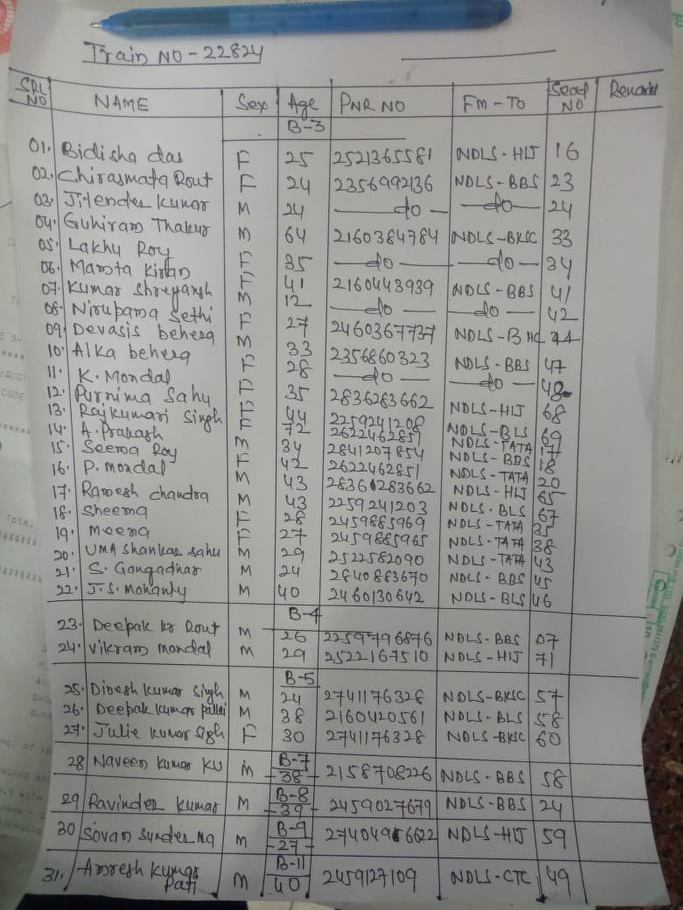 Train NO - 22824
SRL NO NAME Sex Age PNR NO FM - TO Seat NO Remark
B-3
01. Bidisha das F 25 2521365581 NDLS - HIJ 16
02. Chirasmata Rout F 24 2356992136 NDLS - BBS 23
03. Jitender Kumar M 24 do do 24
04. Guhiram Thakur M 64 2160384784 NDLS - BKSC 33
05. Lakhu Roy F 35 do do 34
06. Mamta Kiran F 41 2160443939 NDLS - BBS 41
07. Kumar Shreyansh M 12 do do 42
08. Nirupama Sethi F 27 2460367737 NDLS - BHC 44
09. Devasis behera M 33 2356860323 NDLS - BBS 47
10. Alka behera F 28 do do 48
11. K. Mondal F 35 2836283662 NDLS - HIJ 68
12. Purnima Sahu F 44 2259241208 NDLS - BLS 69
13. Rajkumari Singh F 72 2622462851 NDLS - TATA 17
14. A. Prakash M 34 2841207854 NDLS - BBS 18
15. Seema Roy F 42 2622462851 NDLS - TATA 20
16. P. mondal M 43 2836283662 NDLS - HIJ 65
17. Ramesh chandra M 43 2259241203 NDLS - BLS 67
18. Sheema F 28 2459885969 NDLS - TATA 35
19. Meena F 27 2459885965 NDLS - TATA 38
20. UMA Shankar Sahu M 29 2522582090 NDLS - TATA 43
21. S. Gangadhar M 24 2840883670 NDLS - BBS 45
22. J. S. Mohanty M 40 2460130642 NDLS - BLS 46
B-4
23. Deepak kr Rout M 26 2259796876 NDLS - BBS 07
24. Vikram mondal M 29 2522167510 NDLS - HIJ 71
B-5
25. Dinesh Kumar Singh M 24 2741176328 NDLS - BKSC 57
26. Deepak kumar M 38 2160420561 NDLS - BLS 58
27. Julie kumar F 30 2741176328 NDLS - BKSC 60
B-7
28 Naveen Kumar KU m 38 2158708226 NDLS - BBS 58
B-8
29 Ravinder Kumar M 39 2459027679 NDLS - BBS 24
B-9
30 Sovan Sunder Ng M 27 NDLS - HIJ 59
B-11
31. Amresh Kumar Pati M 40 2459127109 NDLS - CTC 49